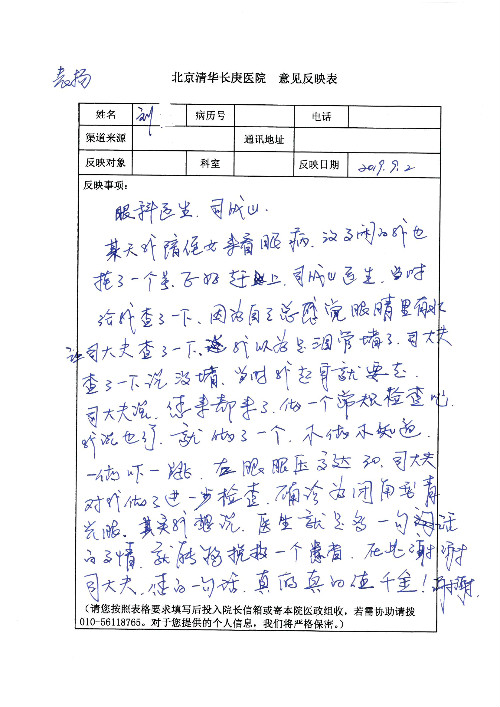 表扬
北京清华长庚医院 意见反映表
姓名 刘 病历号 电话
渠道来源 通讯地址
反映对象 科室 反映日期 2019.9.2
反映事项:
眼科医生、司成山.
某天我陪侄女来看眼病、没事闲的我也
挂了一个号正好赶上、司成山医生、当时
给我查了一下、因为自己总感觉眼睛里有水
让司大夫查了一下、我以为是泪管堵了、司大夫
查了一下说没堵、当时我起身就要走.
司大夫说、您来都来了、做一个常规检查吧.
我说也行、就做了一个、不做不知道、
一做吓一跳、左眼眼压高达30、司大夫
对我做了进一步检查、确诊为闭角型青
光眼、其实我想说、医生就是多一句话
的事情、就能够挽救一个患者、在此谢谢
司大夫、您的一句话、真的真的值千金!谢谢.
(请您按照表格要求填写后投入院长信箱或寄本院医政组收,若需协助请拨
010-56118765。对于您提供的个人信息,我们将严格保密。)